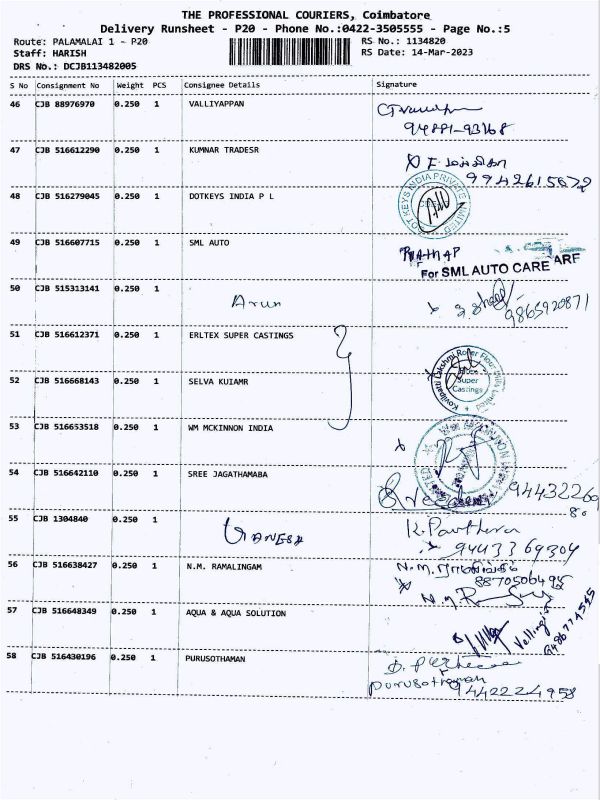 THE PROFESSIONAL COURIERS, Coimbatore
Delivery Runsheet - P20 - Phone No.:0422-3505555 - Page No.:5
Route: PALAMALAI 1 - P20
Staff: HARISH
DRS No.: DCJB113482005
RS No.: 1134820
RS Date: 14-Mar-2023
S No Consignment No Weight PCS Consignee Details Signature
46 CJB 88976970 0.250 1 VALLIYAPPAN
47 CJB 516612290 0.250 1 KUMNAR TRADESR
9942615872
48 CJB 516279045 0.250 1 DOTKEYS INDIA P L
DOT KEYS INDIA PRIVATE LIMITED
49 CJB 516607715 0.250 1 SML AUTO
For SML AUTO CARE
50 CJB 515313141 0.250 1 Arun
9865920871
51 CJB 516612371 0.250 1 ERLTEX SUPER CASTINGS
Super
Castings
52 CJB 516668143 0.250 1 SELVA KUIAMR
53 CJB 516653518 0.250 1 WM MCKINNON INDIA
54 CJB 516642110 0.250 1 SREE JAGATHAMABA
55 CJB 1304840 0.250 1 GANESH
9443369304
56 CJB 516638427 0.250 1 N.M. RAMALINGAM
57 CJB 516648349 0.250 1 AQUA & AQUA SOLUTION
58 CJB 516430196 0.250 1 PURUSOTHAMAN
purusothaman
9442224958